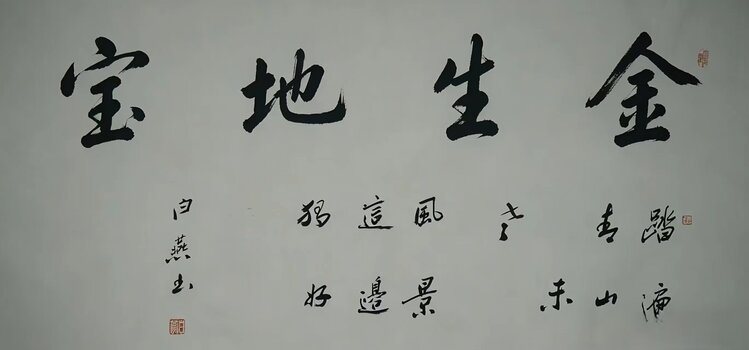 金生地宝
踏遍
青山
未
老
風景
這邊
獨好
白燕玉